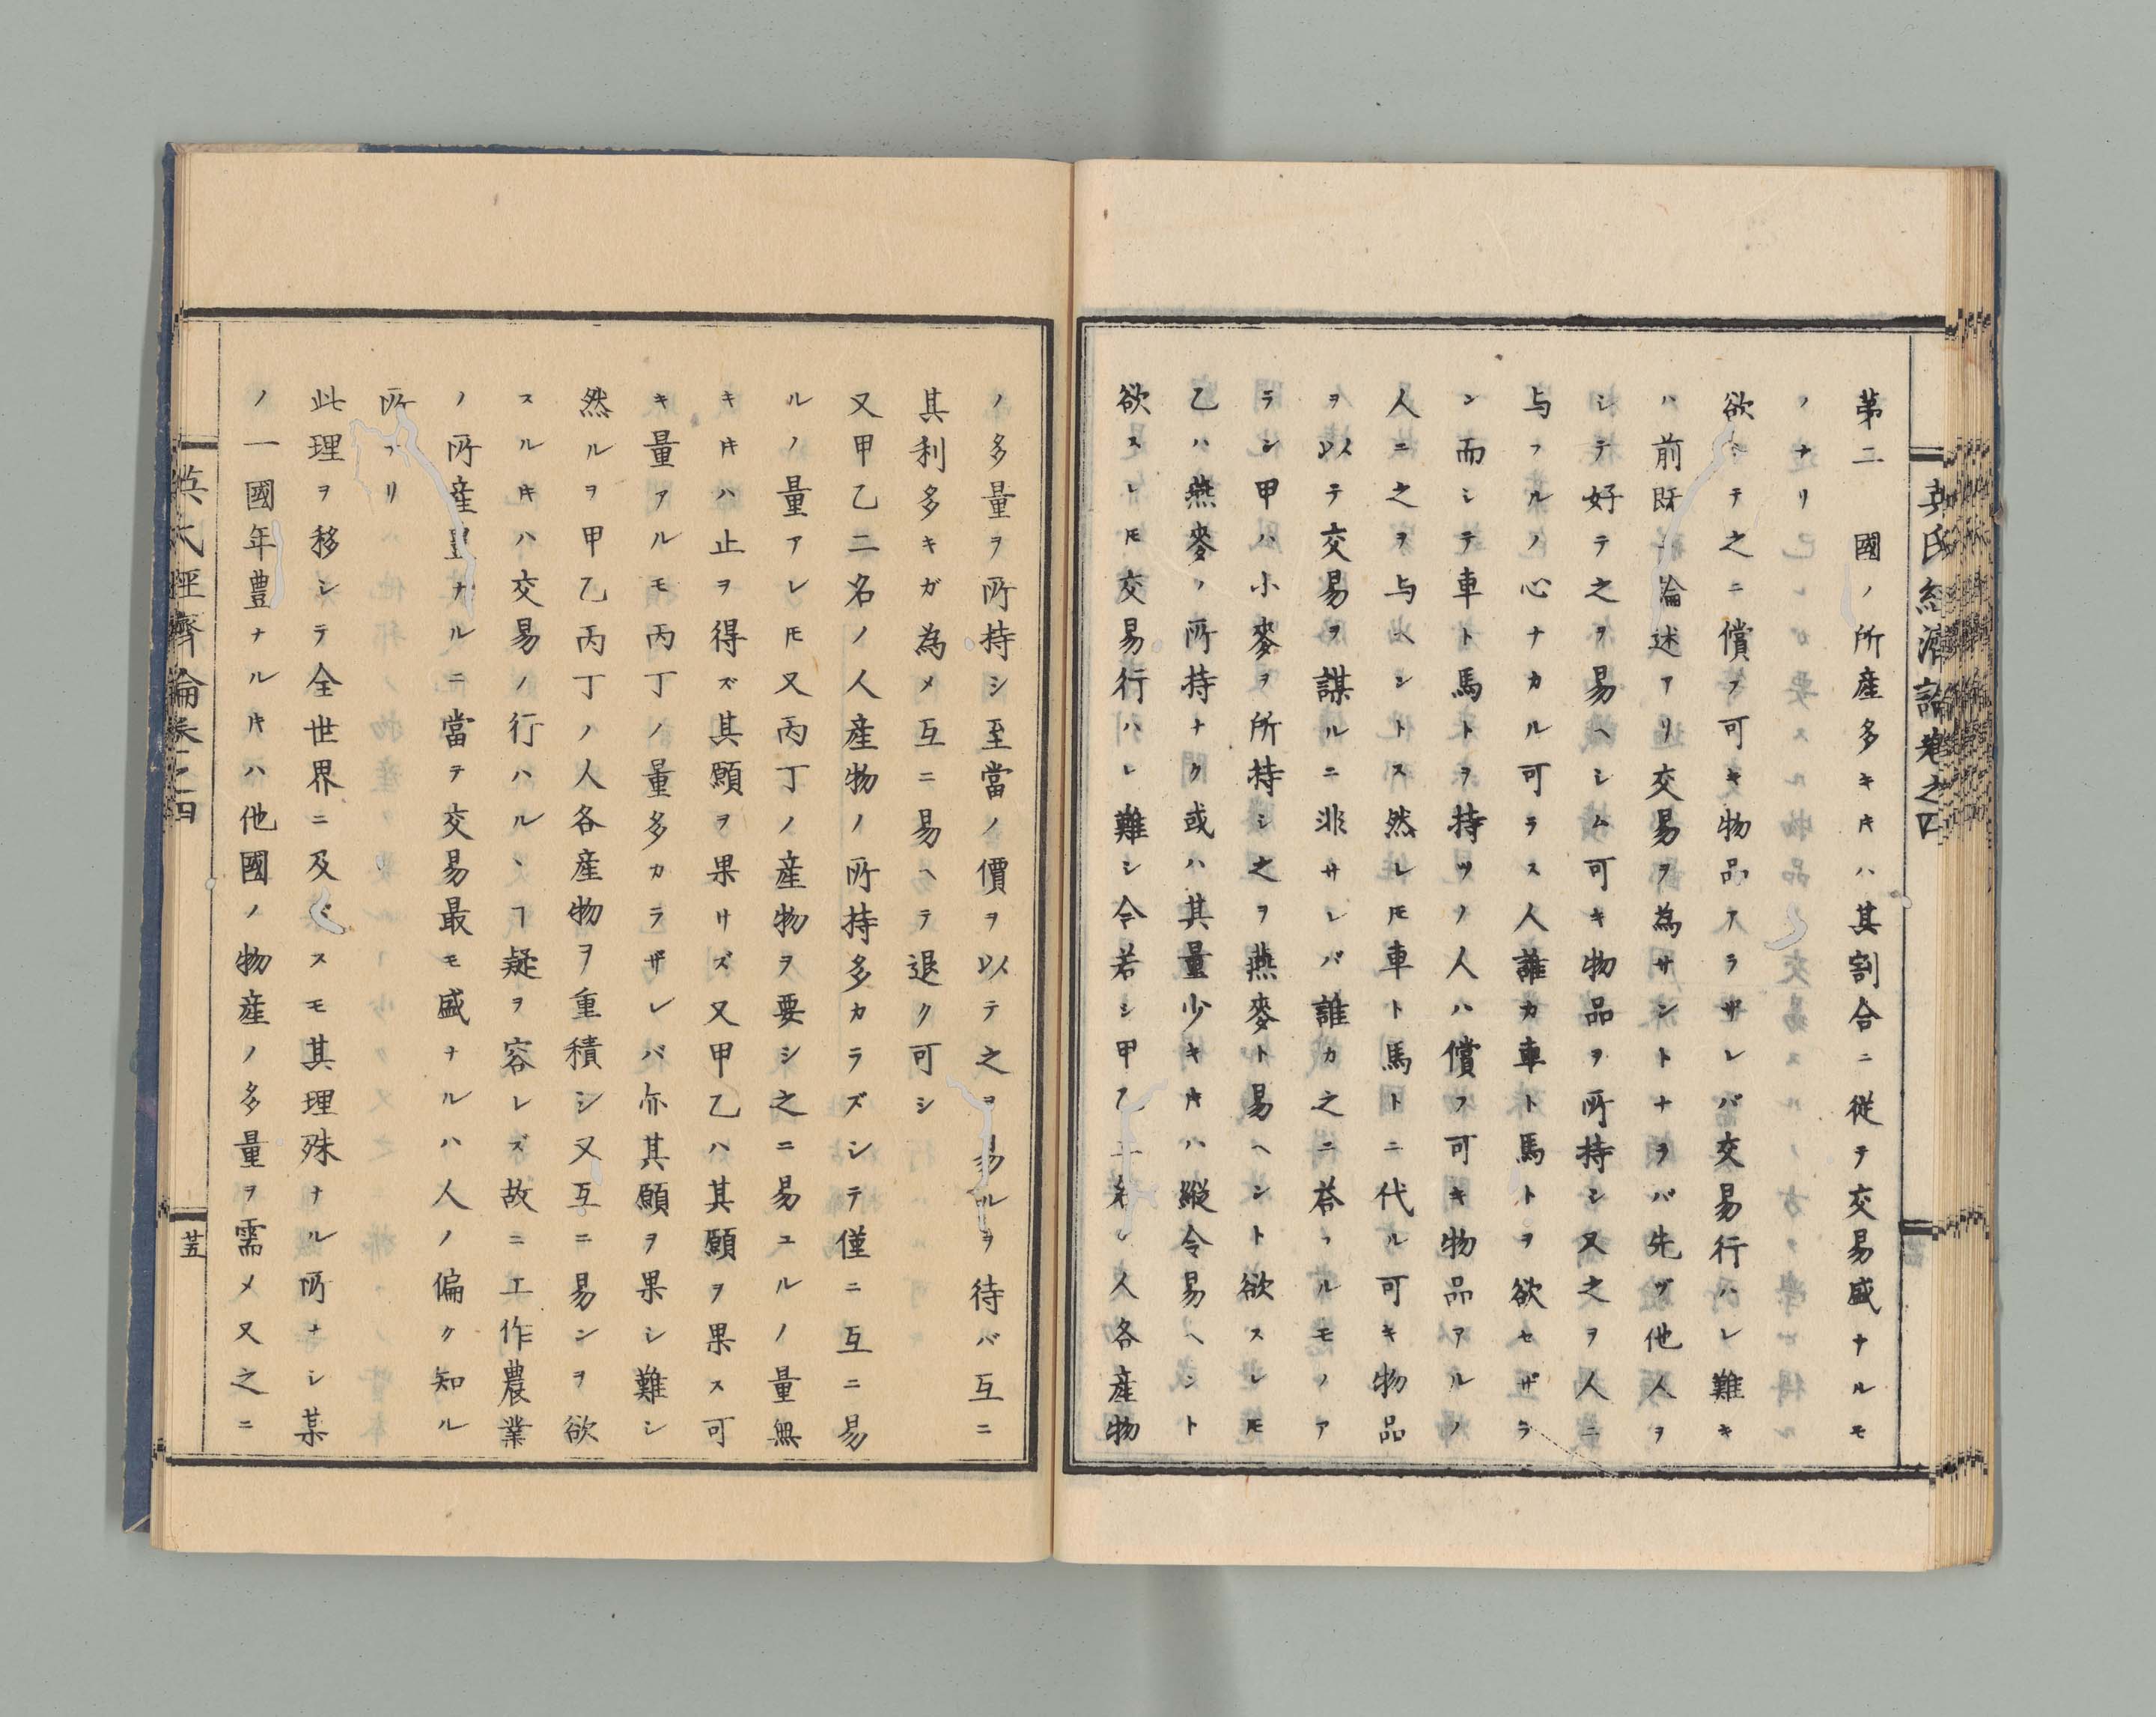 英氏經濟論卷之四
第二　國ノ所産多キ𪜈ハ其割合ニ從テ交易盛ナルモ
ノナリ
欲シテ之ニ償フ可キ物品アラザレバ交易行ハレ難キ
ハ前既ニ論述アリ交易ヲ為サントナラバ先ヅ他人ヲ
シテ好テ之ヲ易ヘシム可キ物品ヲ所持シ又之ヲ人ニ
与フルノ心ナカル可ラス人誰カ車ト馬トヲ欲セザラ
ン而シテ車ト馬トヲ持ツノ人ハ償フ可キ物品アルノ
人ニ之ヲ与ヘントス然レ𪜈車ト馬トニ代ル可キ物品
ヲ以テ交易ヲ謀ルニ非サレバ誰カ之ニ荅フルモノア
ラン甲ハ小麥ヲ所持シ之ヲ燕麥ト易ヘント欲スレ𪜈
乙ハ燕麥ノ所持ナク或ハ其量少キ𪜈ハ縱令易ヘント
欲スレ𪜈交易行ハレ難シ令若シ甲乙二名ノ人各産物
ノ多量ヲ所持シ至當ノ價ヲ以テ之ヲ易ルヲ待バ互ニ
其利多キガ為メ互ニ易ヘテ退ク可シ
又甲乙二名ノ人産物ノ所持多カラズシテ僅ニ互ニ易
ルノ量アレ𪜈又丙丁ノ産物ヲ要シ之ニ易ユルノ量無
キ𪜈ハ止ヲ得ズ其願ヲ果サズ又甲乙ハ其願ヲ果ス可
キ量アルモ丙丁ノ量多カラザレバ亦其願ヲ果シ難シ
然ルヲ甲乙丙丁ノ人各産物ヲ重積シ又互ニ易ンヲ欲
スル𪜈ハ交易ノ行ハルヽヿ疑ヲ容レズ故ニ工作農業
ノ所産豊ナルニ當テ交易最モ盛ナルハ人ノ偏ク知ル
所ナリ
此理ヲ移シテ全世界ニ及ボスモ其理殊ナル所ナシ某
ノ一國年豊ナル𪜈ハ他國ノ物産ノ多量ヲ需メ又之ニ
英氏經濟論卷之四
廿五